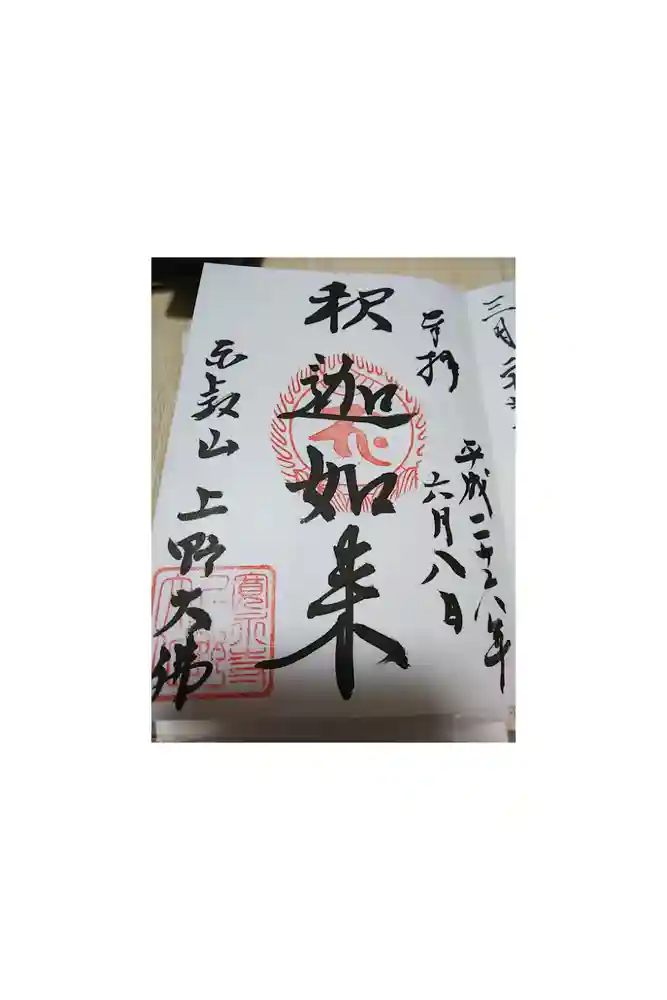 奉拝
平成二十六年
六月八日
釈迦如来
東叡山 上野大佛